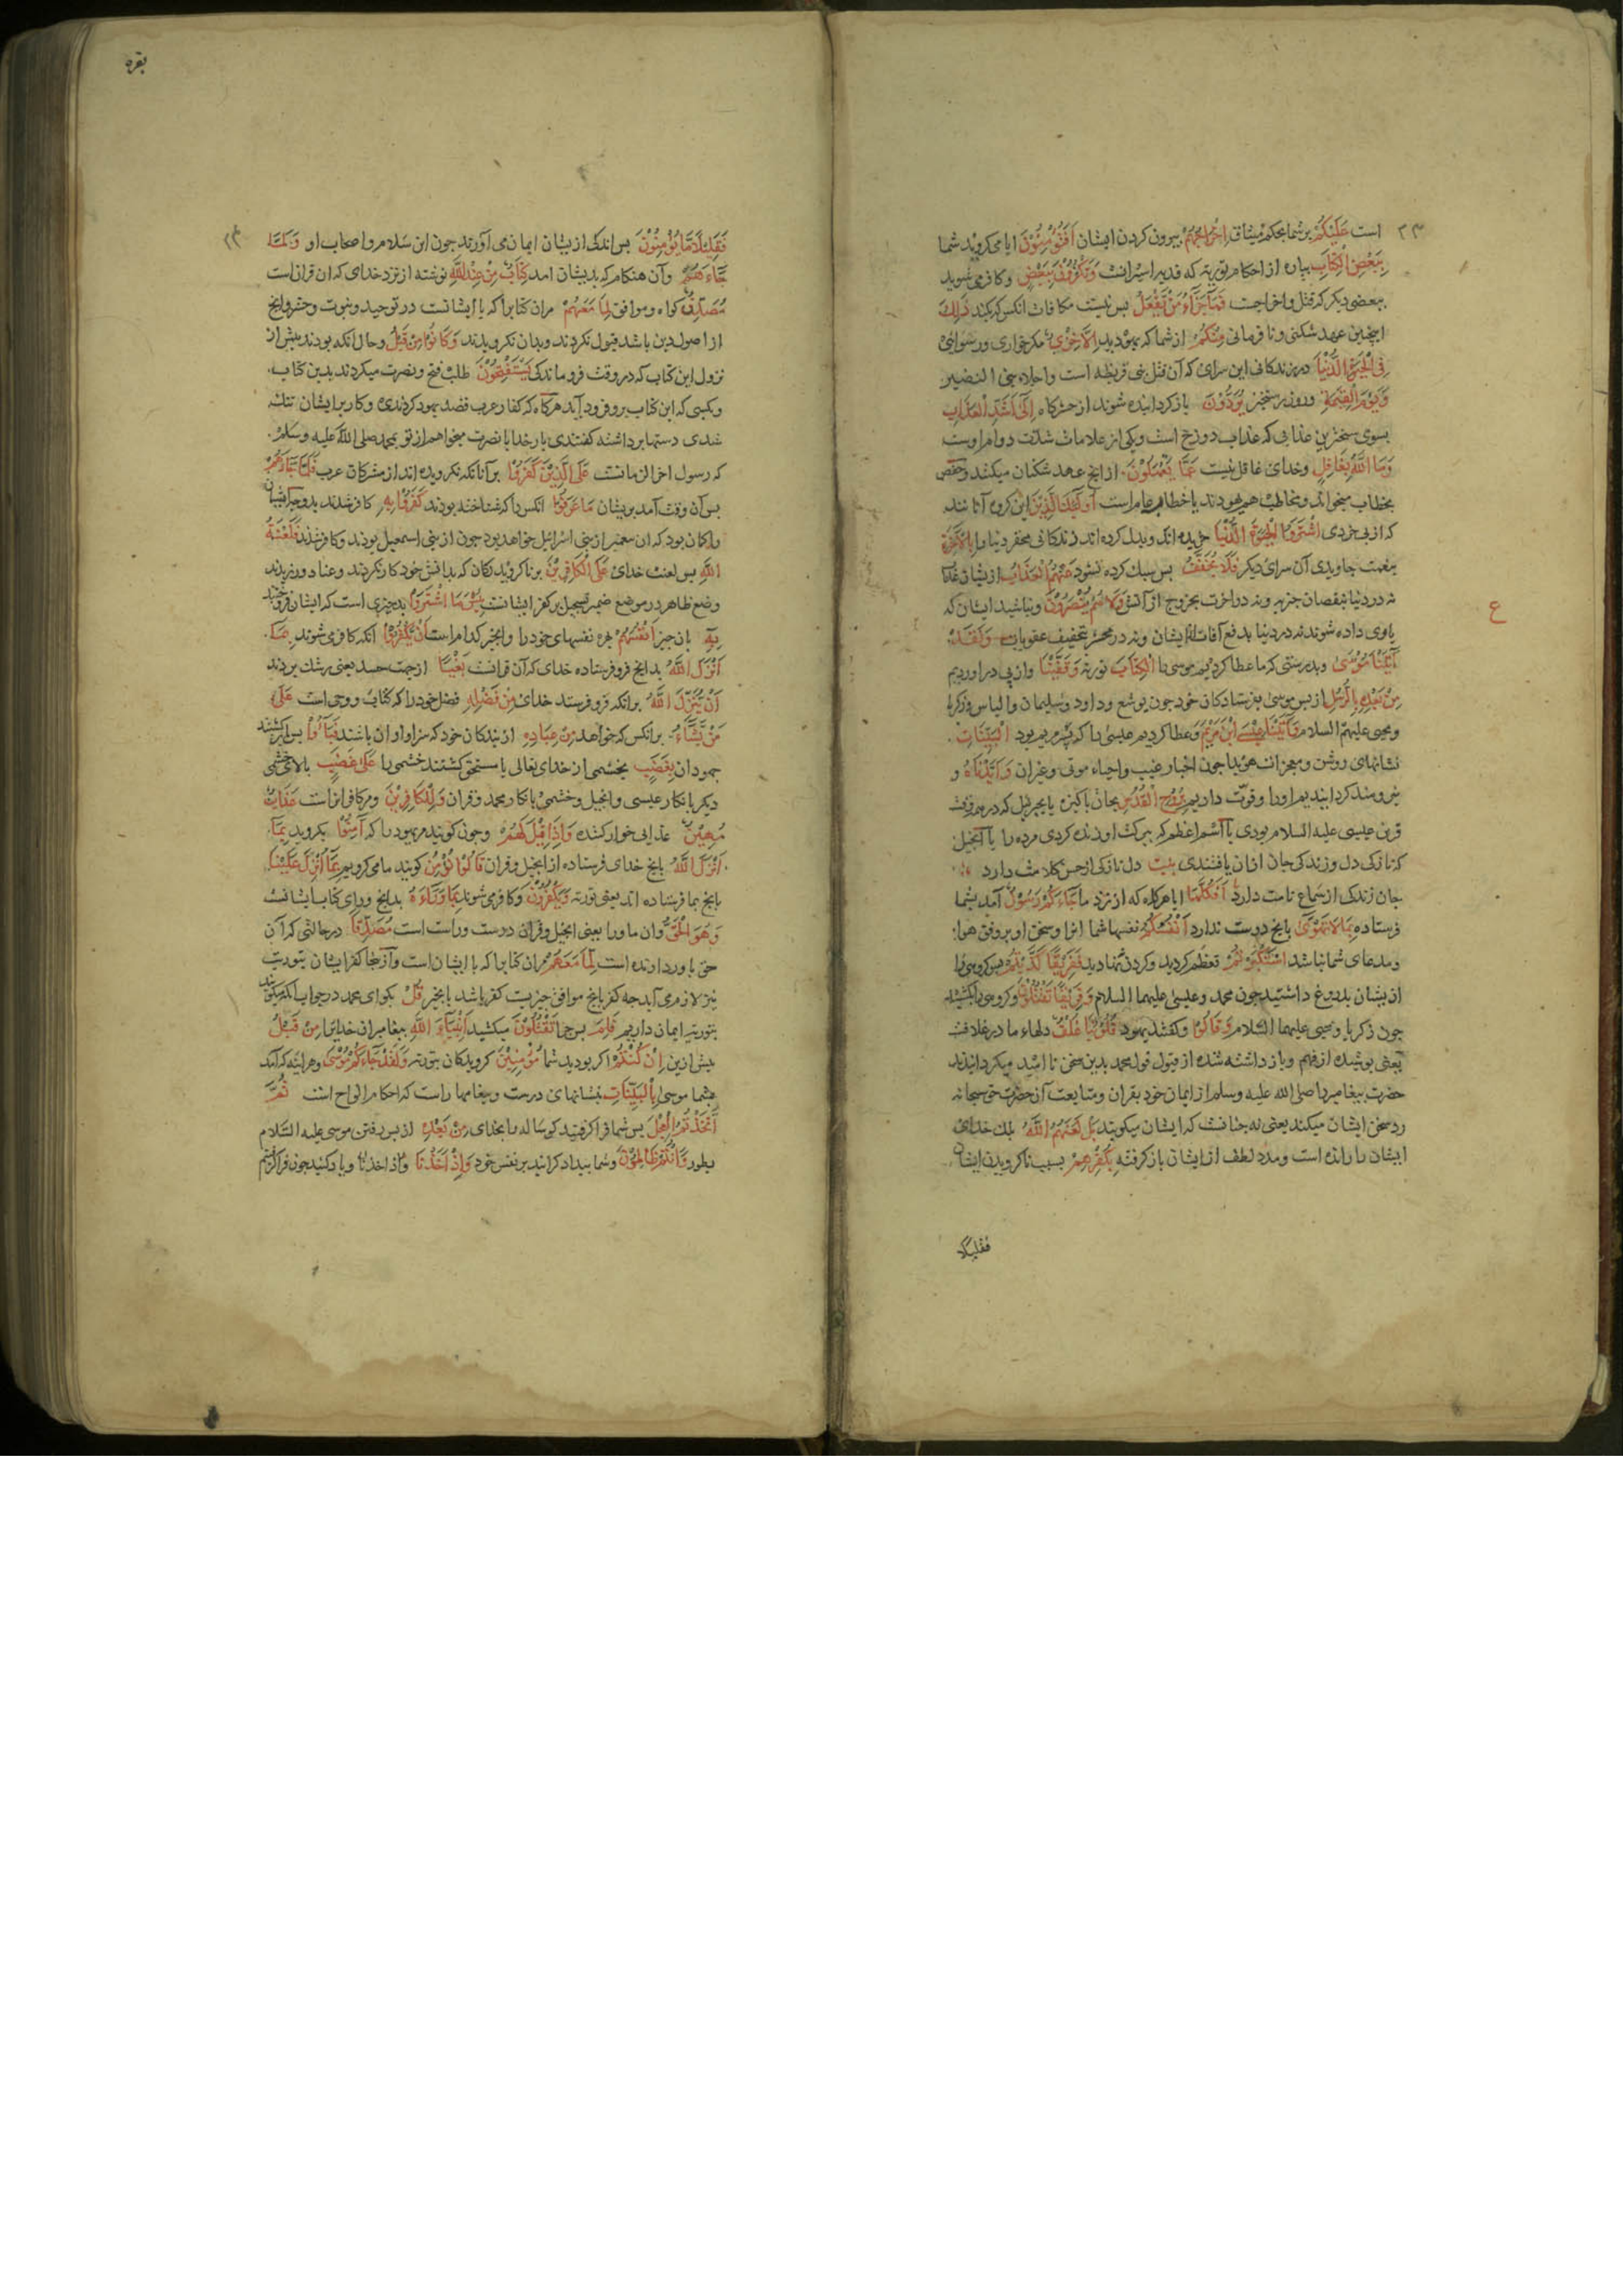 است عَلَيْكُمْ بر شما بحکم میثاق اِخْرَاجُهُمْ بیرون کردن ایشان اَفَتُؤْمِنُونَ ایا می کروید شما
بِبَعْضِ الْكِتَابِ بپاره از احکام توریة که فدیه اسیرانست وَتَكْفُرُونَ بِبَعْضٍ و کافر می شوید
ببعضی دیکر که قتل و اخراجست فَمَا جَزَآءُ مَنْ يَفْعَلُ بس نیست مکافات انکس که بکند ذٰلِكَ
اینچنین عهد شکنی و نافرمانی مِنْكُمْ از شما که یهودید اِلَّا خِزْيٌ مکر خواری و رسوایی
فِي الْحَيٰوةِ الدُّنْيَا در زندکانی این سرای که آن قتل بنی قریظه است و اجلاء بنی النضیر
وَيَوْمَ الْقِيٰمَةِ و روز رستخیز يُرَدُّونَ باز کردانیده شوند از حشرکاه اِلٰى اَشَدِّ الْعَذَابِ
بسوی سختترین عذابی که عذاب دوزخ است و یکی از علامات شدت دوام اوست
وَمَا اللّٰهُ بِغَافِلٍ و خدای غافل نیست عَمَّا يَعْمَلُونَ از انچ عهد شکنان میکنند و حفص
بخطاب میخواند و مخاطب هم یهودند یا خطاب عام است اُولٰئِكَ الَّذِيْنَ این کروه آنانند
که از بی خردی اشْتَرَوُا الْحَيٰوةَ الدُّنْيَا خریده اند و بدل کرده اند زندکانی محقر دنیا را بِالْاٰخِرَةِ
بنعمت جاویدی آن سرای دیکر فَلَا يُخَفَّفُ بس سبک کرده نشود عَنْهُمُ الْعَذَابُ از یشان عذاب
نه در دنیا بنقصان جزیه و نه در اخرت بخروج از آتش وَلَا هُمْ يُنْصَرُونَ و نباشند ایشان که
یاری داده شوند نه در دنیا بدفع آفات از ایشان و نه در محشر بتخفیف عقوبات وَلَقَدْ
اٰتَيْنَا مُوْسٰى و بدرستی که ما عطا کردیم موسی را الْكِتَابَ توریة وَقَفَّيْنَا و از پی در اوردیم
مِنْ بَعْدِهِ بِالرُّسُلِ از بس موسی بفرستادکان خود چون یوشع و داود و سلیمان و الیاس و زکریا
و یحیی علیهم السلام وَاٰتَيْنَا عِيْسَى ابْنَ مَرْيَمَ و عطا کردیم عیسی را که بسر مریم بود الْبَيِّنَاتِ
نشانهای روشن و معجزات هویدا چون اخبار غیب و احیاء موتی و غیر ان وَاَيَّدْنَاهُ و
نیرومند کردانیدیم اورا و قوت دادیم بِرُوحِ الْقُدُسِ بجان باکیزه یا بجبرئیل که در همه وقت
قرین عیسی علیه السلام بودی یا اسم اعظم که ببرکت او زنده کردی مرده را یا انجیل
که تازکی دل و زندکی جان ازان یافتندی بیت دل تازکی از حسن کلامت دارد
جان زندکی از سماع نامت دارد اَفَكُلَّمَا ایا هرکاه که از نزد ما جَآءَكُمْ رَسُولٌ آمد بشما
فرستاده بِمَا لَا تَهْوٰى بانچ دوست ندارد اَنْفُسُكُمُ نفسها شما انرا و سخن او بر وفق هوا
و مدعای شما نباشد اسْتَكْبَرْتُمْ تعظم کردید و کردن نهادید فَفَرِيْقًا كَذَّبْتُمْ بس کروهی را
از یشان بدروغ داشتید چون محمد و عیسی علیهما السلام وَفَرِيْقًا تَقْتُلُونَ و کروهی را بکشید
چون زکریا و یحیی علیهما السلام وَقَالُوا و کفتند یهود قُلُوبُنَا غُلْفٌ دلهاء ما در غلافست
یعنی بوشیده از فهم و باز داشته شده از قبول قول محمد بدین سخن نا امید میکردانیدند
حضرت بیغامبر را صلی الله علیه وسلم از ایمان خود بقران و متابعت آن حضرت حق سبحانه
رد سخن ایشان میکند یعنی نه چنانست که ایشان میکویند بَلْ لَعَنَهُمُ اللّٰهُ بلک خدای
ایشان را رانده است و مدد لطف از ایشان باز کرفته بِكُفْرِهِمْ بسبب ناکرویدن ایشان
فقلیلا
ع
۲۳
بقره
۲۴
فَقَلِيْلًا مَّا يُؤْمِنُونَ بس اندکی از یشان ایمان می آورند چون ابن سلام و اصحاب او وَلَمَّا
جَآءَهُمْ و آن هنکام که بدیشان امد كِتَابٌ مِنْ عِنْدِ اللّٰهِ نوشته از نزد خدای که ان قران است
مُصَدِّقٌ کواه و موافق لِمَا مَعَهُمْ مران کتابرا که با ایشانست در توحید و نبوت و حشر و انچ
از اصول دین باشد قبول نکردند و بدان نکرویدند وَكَانُوا مِنْ قَبْلُ و حال انکه بودند بیش از
نزول این کتاب که در وقت فروماندکی يَسْتَفْتِحُونَ طلب فتح و نصرت میکردند بدین کتاب
و بکسی که این کتاب برو فرود آید هرکاه که کفار عرب قصد یهود کردندی و کار بر ایشان تنک
شدی دستها برداشته کفتندی بار خدایا نصرت میخواهیم از تو بمحمد صلی الله علیه وسلم
که رسول اخر الزمانست عَلَى الَّذِيْنَ كَفَرُوا بر آنانکه نکرویده اند از مشرکان عرب فَلَمَّا جَآءَهُمْ
بس آن وقت آمد بریشان مَا عَرَفُوا انکس را که شناخته بودند كَفَرُوا بِهِ کافر شدند بدو چرا که ایشان
را کمان بود که ان بیغمبر از بنی اسرائیل خواهد بود چون از بنی اسمعیل بود و کافر شدند فَلَعْنَةُ
اللّٰهِ بس لعنت خدای عَلَى الْكَافِرِيْنَ بر ناکرویدکان که بدانش خود کار نکردند و عناد ورزیدند
وضع ظاهر در موضع ضمیر تسجیل بر کفر ایشانست بِئْسَمَا اشْتَرَوْا بد چیزی است که ایشان فروختند
بِهِ بان چیز اَنْفُسَهُمْ بهره نفسهای خود را و انچیز کدام است اَنْ يَكْفُرُوا انکه کافر می شوند بِمَا
اَنْزَلَ اللّٰهُ بدانچ فرو فرستاده خدای که آن قرانست بَغْيًا از جهت حسد یعنی رشک بردند
اَنْ يُنَزِّلَ اللّٰهُ برانکه فرو فرستد خدای مِنْ فَضْلِهِ فضل خود را که کتاب و وحی است عَلٰى
مَنْ يَشَآءُ برانکس که خواهد مِنْ عِبَادِهِ از بندکان خود که سزاوار ان باشند فَبَآءُوا بس باز کشتند
جهودان بِغَضَبٍ بخشمی از خدای تعالی یا مستحق کشتند خشمی را عَلٰى غَضَبٍ بالای خشمی
دیکر بانکار عیسی و انجیل و خشمی بانکار محمد و قران وَلِلْكَافِرِيْنَ و مر کافرانراست عَذَابٌ
مُهِيْنٌ عذابی خوار کننده وَاِذَا قِيْلَ لَهُمْ و چون کویند مر یهود را که اٰمِنُوا بکروید بِمَا
اَنْزَلَ اللّٰهُ بانچ خدای فرستاده از انجیل و قران قَالُوا نُؤْمِنُ کویند ما می کرویم بِمَا اُنْزِلَ عَلَيْنَا
بانچ بما فرستاده اند یعنی توریة وَيَكْفُرُونَ و کافر می شوند بِمَا وَرَآءَهُ بدانچ ورای کتاب ایشانست
وَهُوَ الْحَقُّ و ان ماورا یعنی انجیل و قران درست و راست است مُصَدِّقًا در حالتی که آن
حق باور دارنده است لِمَا مَعَهُمْ مران کتابرا که با ایشان است و از نجا کفر ایشان بتوریت
نیز لازم می آید چه کفر بانچ موافق چیزیست کفر باشد بانچیز قُلْ بکو ای محمد در جواب انکه میکویند
بتوریة ایمان داریم فَلِمَ بس چرا تَقْتُلُونَ میکشید اَنْبِيَآءَ اللّٰهِ بیغامبران خدایرا مِنْ قَبْلُ
بیش ازین اِنْ كُنْتُمْ اکر بودید شما مُؤْمِنِيْنَ کرویدکان بتوریة وَلَقَدْ جَآءَكُمْ مُوْسٰى و هراینه که آمد
بشما موسی بِالْبَيِّنَاتِ بنشانهای درست و بیغامها راست که احکام الواح است ثُمَّ
اتَّخَذْتُمُ الْعِجْلَ بس شما فرا کرفتید کوساله را بخدای مِنْ بَعْدِهِ از بس رفتن موسی علیه السلام
بطور وَاَنْتُمْ ظَالِمُونَ و شما بیداد کرانید بر نفس خود وَاِذْ اَخَذْنَا و اذ اخذنا و یاد کنید چون فرا کرفتیم